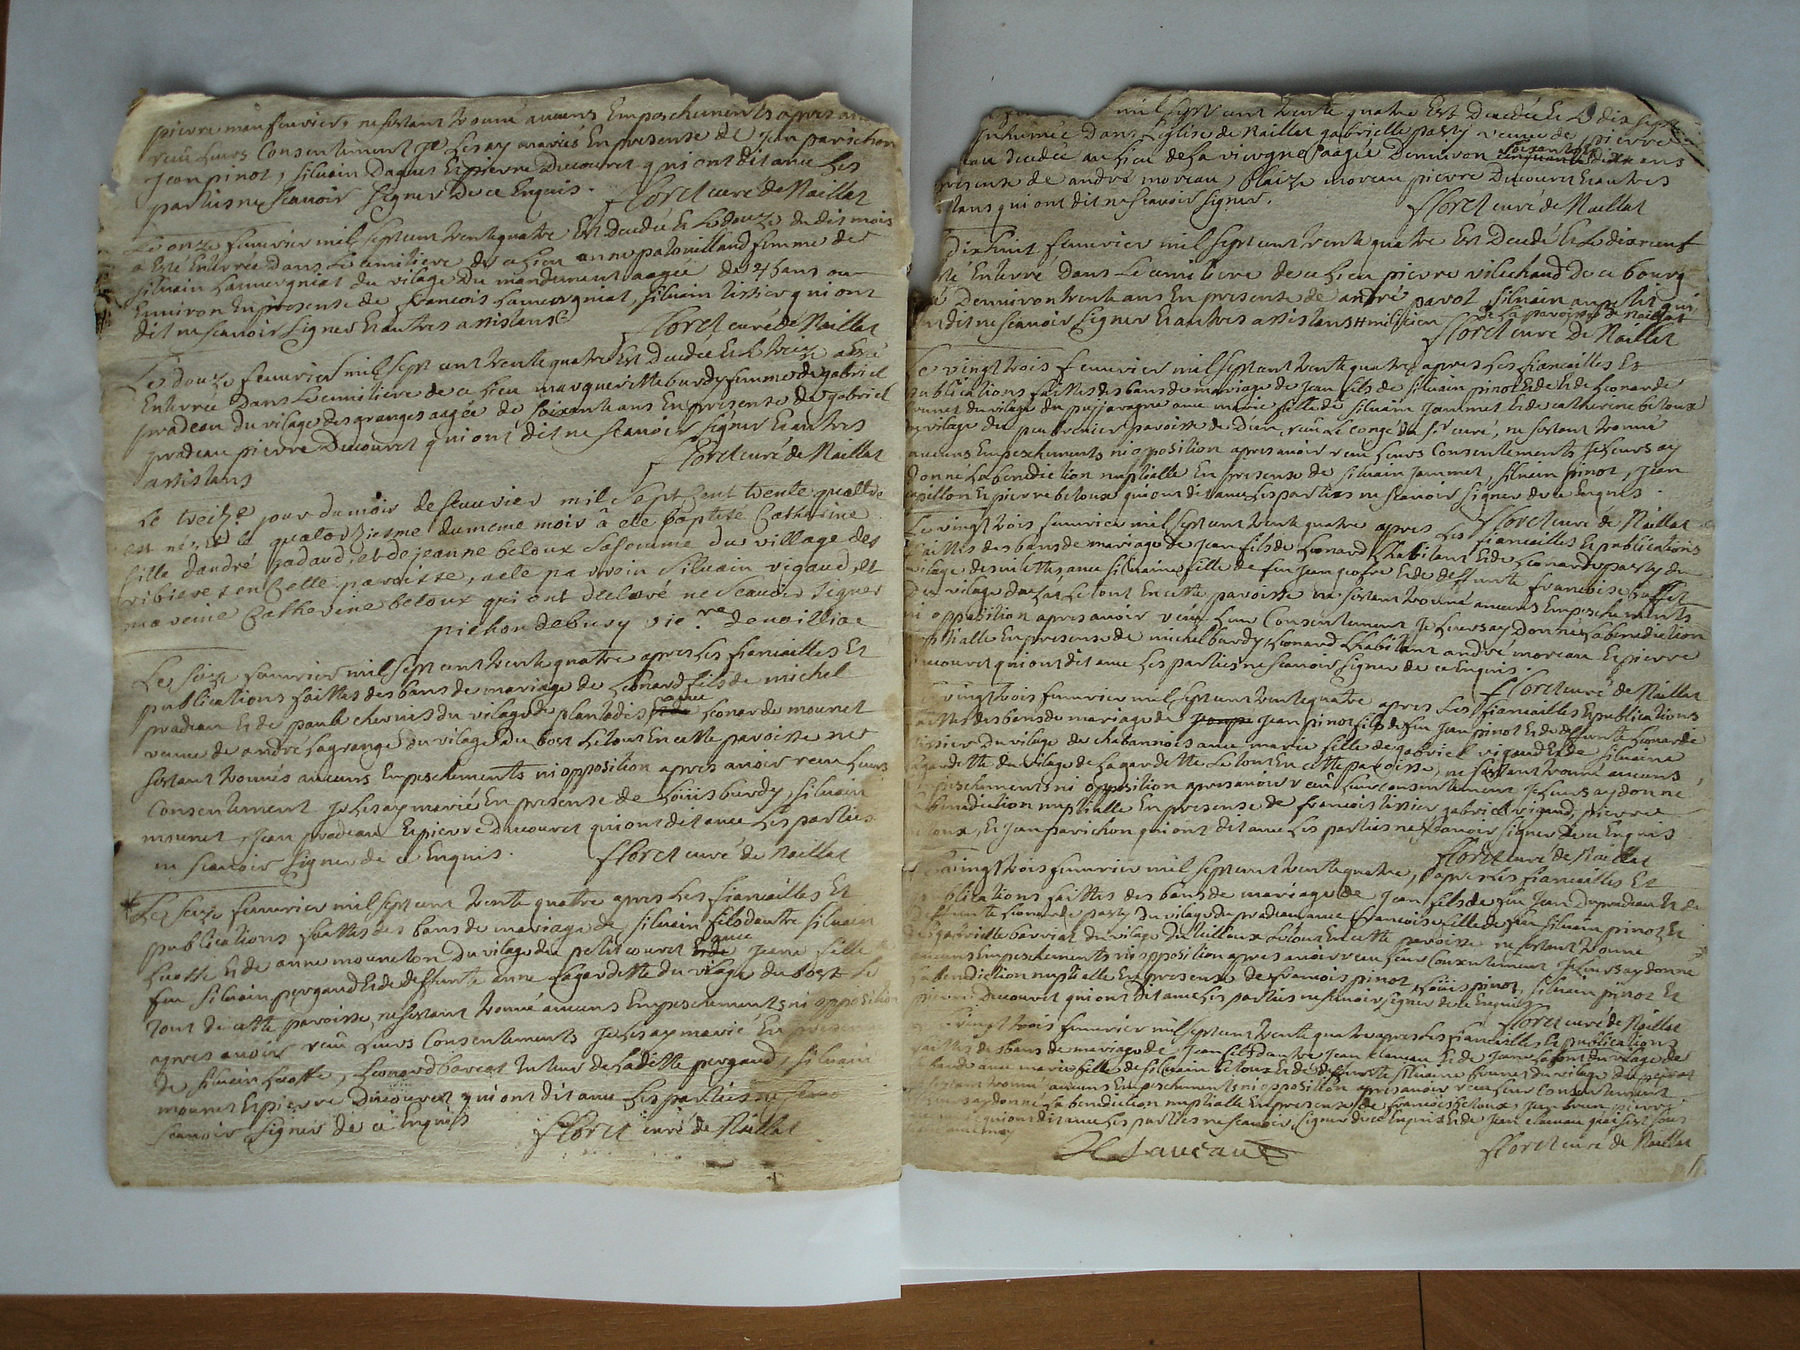 pierre monfeurier, ne sestant trouvé aucuns Empeschements apres avoir
receû Leurs Consentement Je Les ay mariés En presense de Jean parichon
Jean pinot, silvain Daques Et pierre Ducouret qui ont dit avec Les
parties ne scavoir signer De ce Enquis. floret curé de Naillat
Le onze feuvrier mil sept cent trente quatre Est Decedée Et Le douze du dit mois
a Esté Enterrée Dans Le cimitiere de ce Lieu anne patouillaud femme de
silvain Lamorgniat du vilage Du mandement aagée de ans ou
Environ En presense de francois Lamorgniat, silvain tixier qui ont
dit ne scavoir signer Et autres assistans floret curé de Naillat
Le douze feuvrier mil sept cent trente quatre Est Decedée Et Le treize a Esté
Enterrée Dans Le cimitiere de ce Lieu margueritte burdy femme de gabriel
pradeau du vilage des granges aagée de soixante ans En presense de gabriel
pradeau pierre Ducouret qui ont dit ne scavoir signer Et autres
assistans floret curé de Naillat
Le treize jour du mois de feuvrier mil sept cent trente quattre
est né, et le quatorziesme du mème mois â ete baptisé Catherine
fille d'andré gadaud, et de jeanne beloux sa femme du village des
ribieres en cette paroisse, a ete parrein silvain rigaud, et
mareine Catherine beloux qui ont declaré ne Scavoir signer
pichon debury vic.re de noilliac
Le seize feuvrier mil sept cent trente quatre apres Les fiancailles Et
publications faittes des bans de mariage de Leonard fils de michel
pradeau Et de paule chernis du vilage de plantadis avec Leonarde mounet
veuve de andre Lagrange du vilage Du bost Le tout En cette paroisse ne
sestant trouvés aucuns Empeschements ni opposition apres avoir receu Leurs
Consentement Je Les ay marié En presense de Loüis burdy, silvain
mounet, Jean pradeau Et pierre Ducouret qui ont dit avec Les parties
ne scavoir signer de ce Enquis. floret curé de Naillat
Le seize feuvrier mil sept cent trente quatre apres Les fiancailles Et
publications faittes des bans de mariage de silvain fils dautre silvain
Luotte Et de anne mouneton du vilage du petit couret avec Jeane fille
feu silvain pergaud Et de deffunte anne Lagardette du vilage du bost Le
tout de cette paroisse, ne sestant trouvé aucuns Empeschements ni opposition
apres avoir receû Leurs Consentements Je Les ay marié En presense
de silvain Luotte, Leonard bareat tuteur de Laditte pergaud, silvain
mounet Et pierre Ducouret qui ont dit avec Les parties ne
scavoir signer de ce Enquis floret curé de Naillat
mil sept cent trente quatre Est Decedée Et Le dix sept
Inhumée Dans Leglise de Naillat gabrielle pasty veuve de pierre
decedée au Lieu de La viergne aagée Denviron soixante dix ans
presense de andré moreau, blaize moreau pierre Ducouret Et autres
assistans qui ont dit ne scavoir signer. floret curé de Naillat
Dix huit feuvrier mil sept cent trente quatre Est Decedé Et Le dix neuf
Enterré dans Le cimitiere de ce Lieu pierre vilechaud De ce bourg
Denviron trente ans En presense de andré parot silvain aupetit qui
ont dit ne scavoir signer Et autres assistans milicien de La paroisse de Naillat
floret curé De Naillat
Le vingt trois feuvrier mil sept cent trente quatre apres Les fiancailles Et
publications faittes des bans de mariage de Jean fils de silvain pinot Et de Leonarde
du vilage du avec marie fille de silvain Jammet Et de catherine beloux
du vilage du paroisse de Dun, veu Le congé du sr curé, ne sestant trouvé
aucuns Empeschements ni opposition apres avoir receu Leurs Consentements Je Leurs ay
donné La benediction nuptialle En presense de silvain Jammet, silvain pinot, Jean
papillon Et pierre beloux qui ont dit avec Les parties ne scavoir signer de ce Enquis.
floret curé de Naillat
Le vingt trois feuvrier mil sept cent trente quatre apres Les fiancailles Et publications
faittes des bans de mariage de Jean fils de Leonard Lhabitant Et de Leonarde pasty du
vilage des avec silvaine fille de feu Jean Et de deffunte francoise
Du vilage de Le tout En cette paroisse ne sestant trouvé aucuns Empeschements
ni opposition apres avoir receu Leur Consentement Je Leurs ay Donné La benediction
nuptialle En presense de michel burdy, Leonard Lhabitant andré moreau Et pierre
Ducouret qui ont dit avec Les parties ne scavoir signer de ce Enquis.
floret curé de Naillat
vingt trois feuvrier mil sept cent trente quatre apres Les fiancailles Et publications
faittes des bans de mariage de Jean pinot fils de feu Jean pinot Et de deffunte Leonarde
tixier Du vilage de chabannois avec marie fille de gabriel rigaud Et de silvaine
Lagardette du vilage de Lagardette Le tout En cette paroisse, ne sestant trouvé aucuns
Empeschements ni opposition apres avoir receû Leur Consentement Je Leurs ay donné
La benediction nuptialle En presense de francois tixier gabriel rigaud, pierre
beloux, Et Jean parichon qui ont dit avec Les parties ne scavoir signer De ce Enquis
floret curé de Naillat
vingt trois feuvrier mil sept cent trente quatre, apres Les fiancailles Et
publications faittes des bans de mariage de Jean fils de feu Jean Dupradeau Et de
deffunte Leonarde pasty Du vilage du pradeau avec francoise fille de feu silvain pinot Et
de gabrielle barriat du vilage Du tilloux Le tout En cette paroisse ne sestant trouvé
aucuns Empeschements ni opposition apres avoir receu Leur Consentement Je Leurs ay donné
La benediction nuptialle En presense de francois pinot, Loüis pinot, silvain pinot Et
pierre Ducouret qui ont Dit avec Les parties ne scavoir signer de ce Enquis
floret curé de Naillat
vingt trois feuvrier mil sept cent trente quatre apres Les fiancailles Et publications
faittes des bans de mariage de Jean fils dautre Jean claucau Et de Jeanne Lafont du vilage de
avec marie fille de silvain beloux Et de deffunte silvaine brunet du vilage
sestant trouvé aucuns Empeschements ni opposition apres avoir receu Leur Consentement
Leurs ay donné La benediction nuptialle En presense de francois beloux, Jean brun, pierre
qui ont dit avec Les parties ne scavoir signer de ce Enquis Et de Jean claucau qui sest sous
signé avec moy
Claucaud floret curé de Naillat